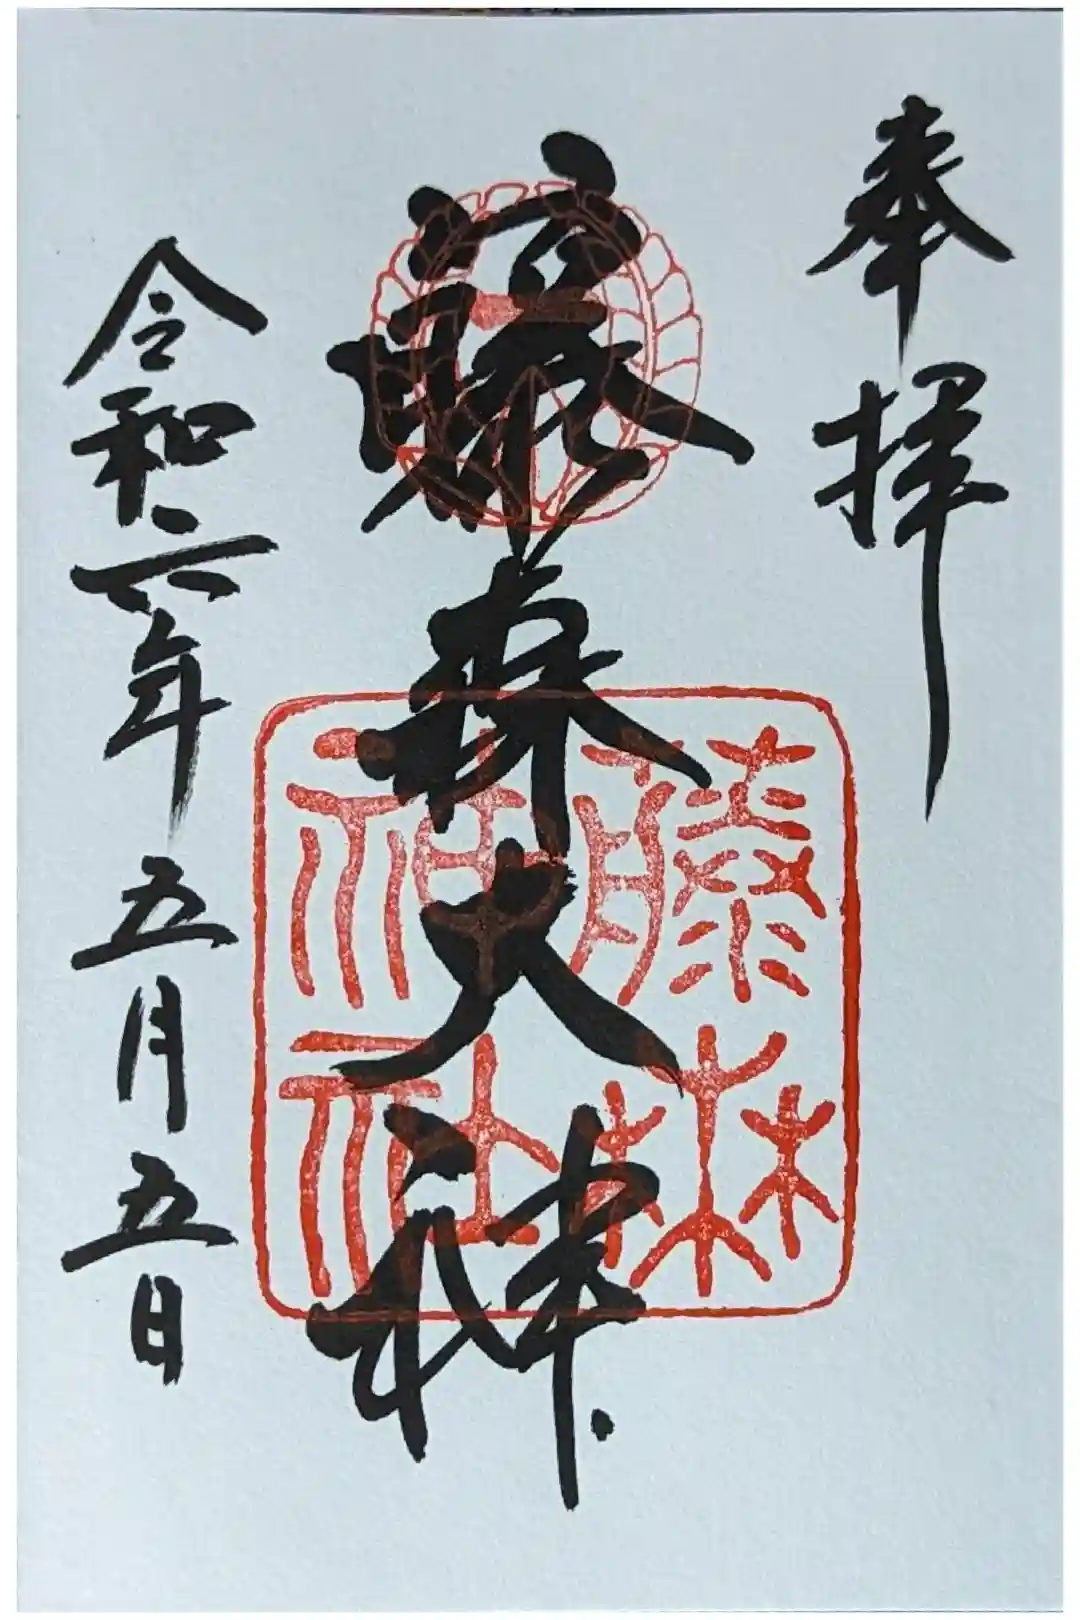 奉拝
藤森大神
藤森
神社
令和六年五月五日